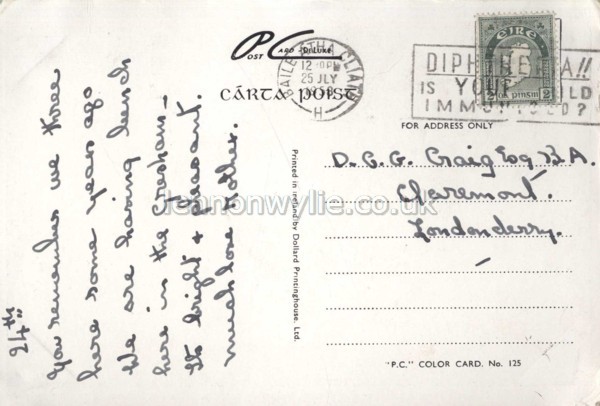 24th
You remember we three
here some years ago
We are having lunch
here in the Gresham –
So bright & pleasant.
much love Mother.
POST CARD DeLUXE
CÁRTA POIST
BAILE ÁTHA CLIATH
25 JLY
H
DIPHTHERIA!!
IS YOUR CHILD
IMMUNISED?
EIRE
2 pinsin 2
FOR ADDRESS ONLY
D. C. G. Craig Esq. B.A.
Claremont.
Londonderry.
Printed in Ireland by Dollard Printinghouse, Ltd.
"P.C." COLOR CARD. No. 125
lennonwylie.co.uk